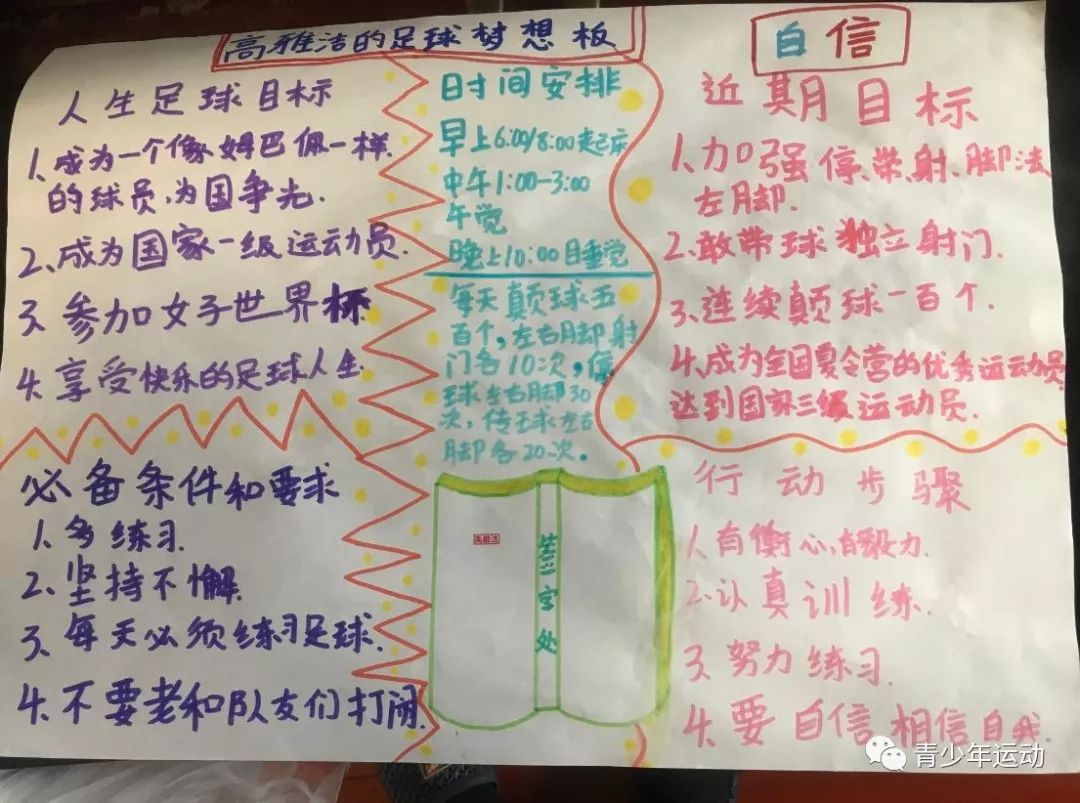 高雅洁的足球梦想板
自信
人生足球目标
1.成为一个像姆巴佩一样
的球员,为国争光.
2.成为国家一级运动员.
3.参加女子世界杯
4.享受快乐的足球人生.
时间安排
早上6:00/8:00起床
中午1:00-3:00
午觉
晚上10:00目睡觉
每天颠球五
百个,左右脚射
门各10次,停
球左右脚30
次,传球左右
脚各20次。
近期目标
1.加强停、带、射、脚法
左脚.
2.敢带球独立射门.
3.连续颠球一百个.
4.成为全国夏令营的优秀运动员
达到国家三级运动员.
必备条件和要求
1.多练习.
2.坚持不懈.
3.每天必须练习足球.
4.不要老和队友们打闹.
高雅洁
签字处
行动步骤
1.有衡心,有毅力.
2.认真训练.
3.努力练习.
4.要自信相信自我.
青少年运动